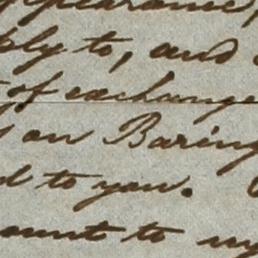 pearance,
ply to, and
of exchange
on Baring
d to you.
ount to my